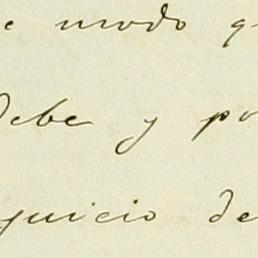 e modo q
debe y po
juicio de